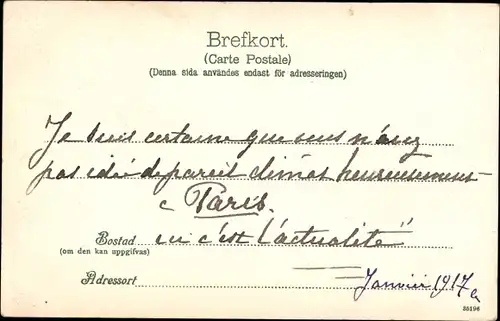 Brefkort.
(Carte Postale)
(Denna sida användes endast för adresseringen)
Je suis certaine que vous n'avez
pas idée de pareil climat heureusement
à Paris.
Bostad ou c'est l'actualité"
(om den kan uppgifvas)
Adressort Janvier 1917
55196